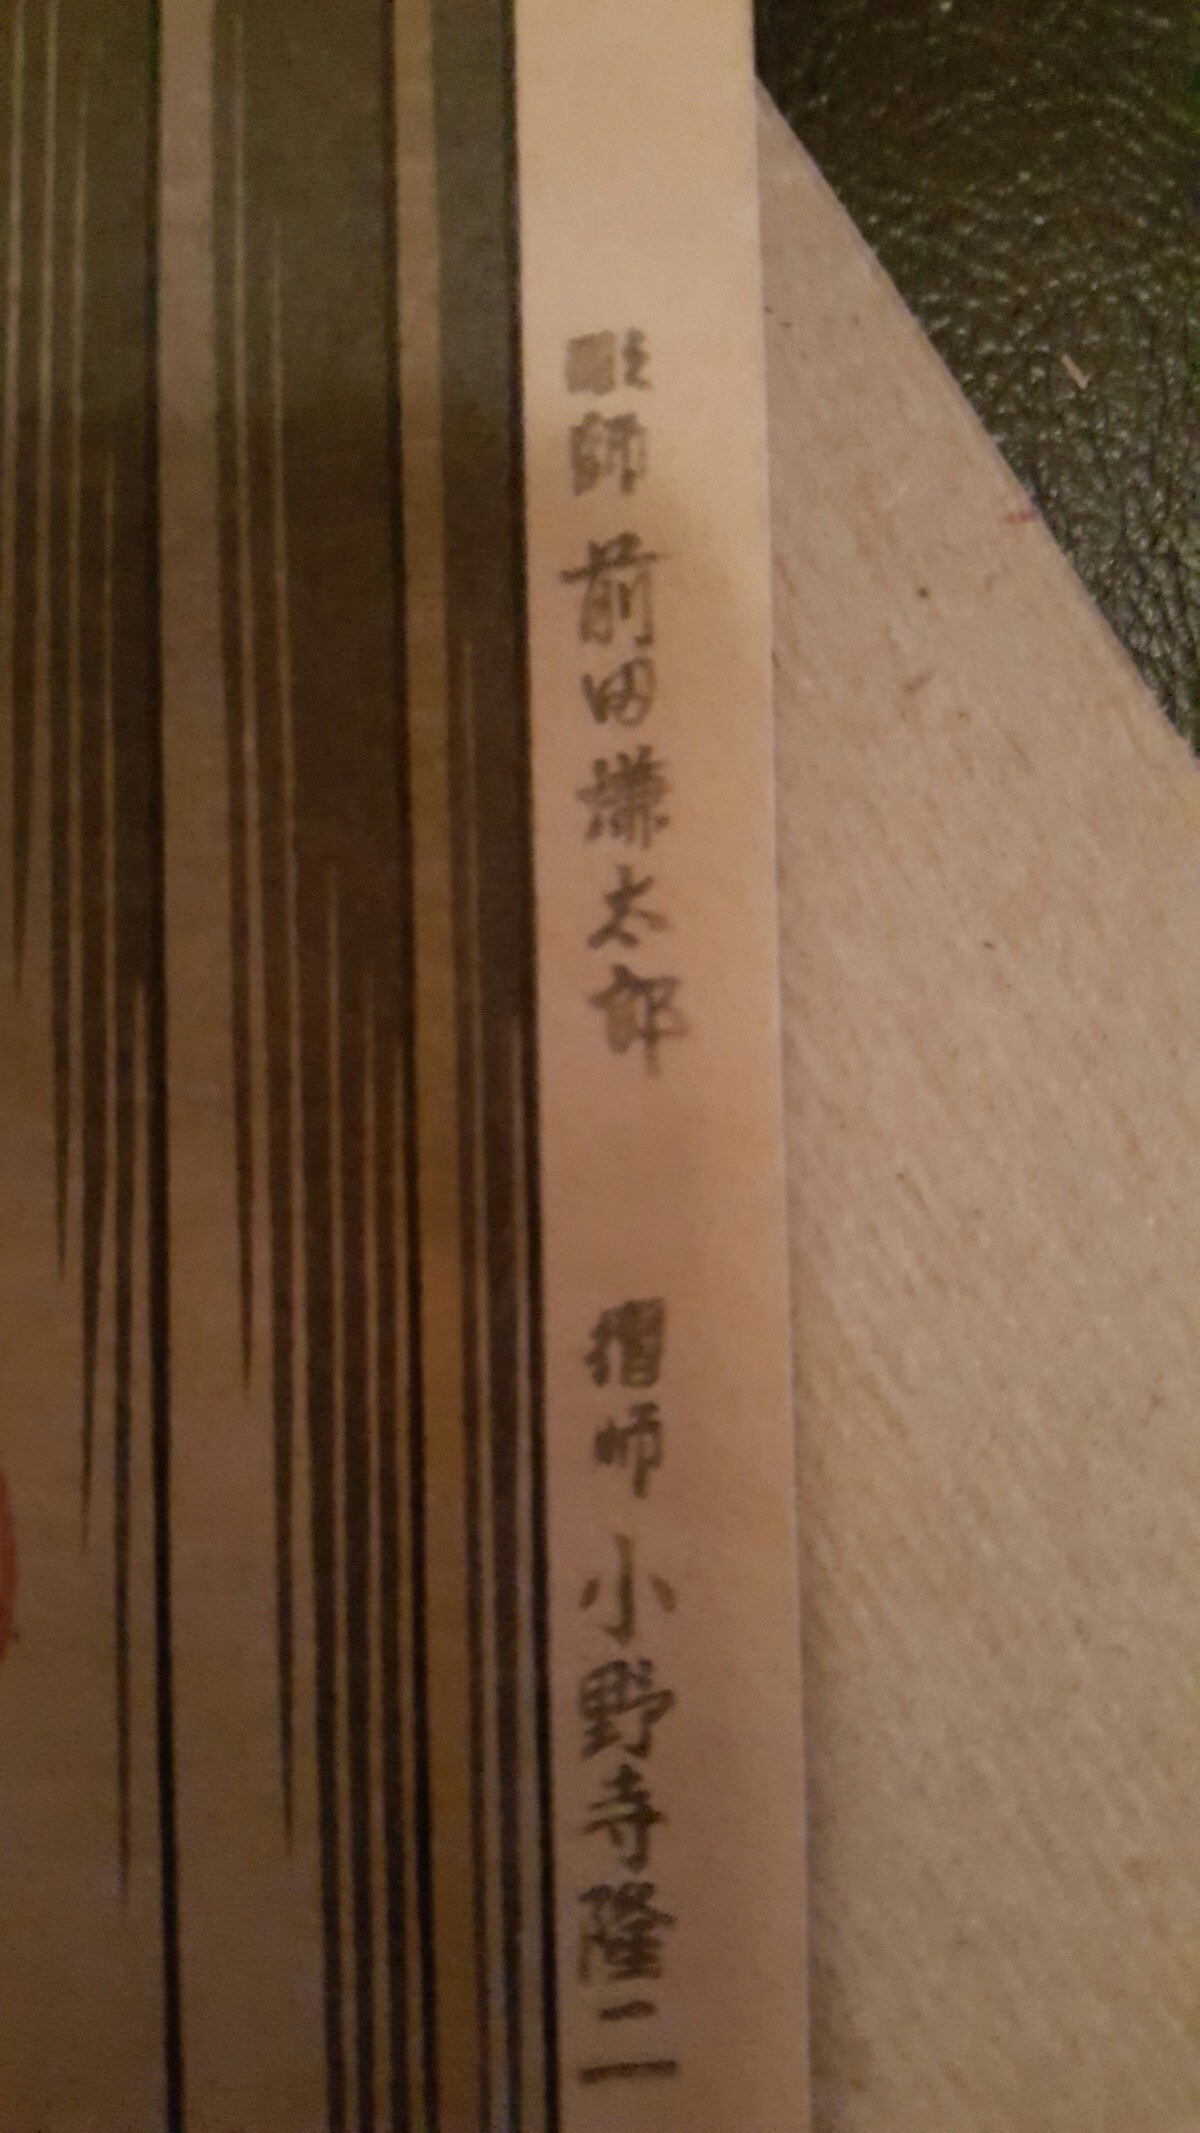 彫師 前田謙太郎
摺師 小野寺隆二